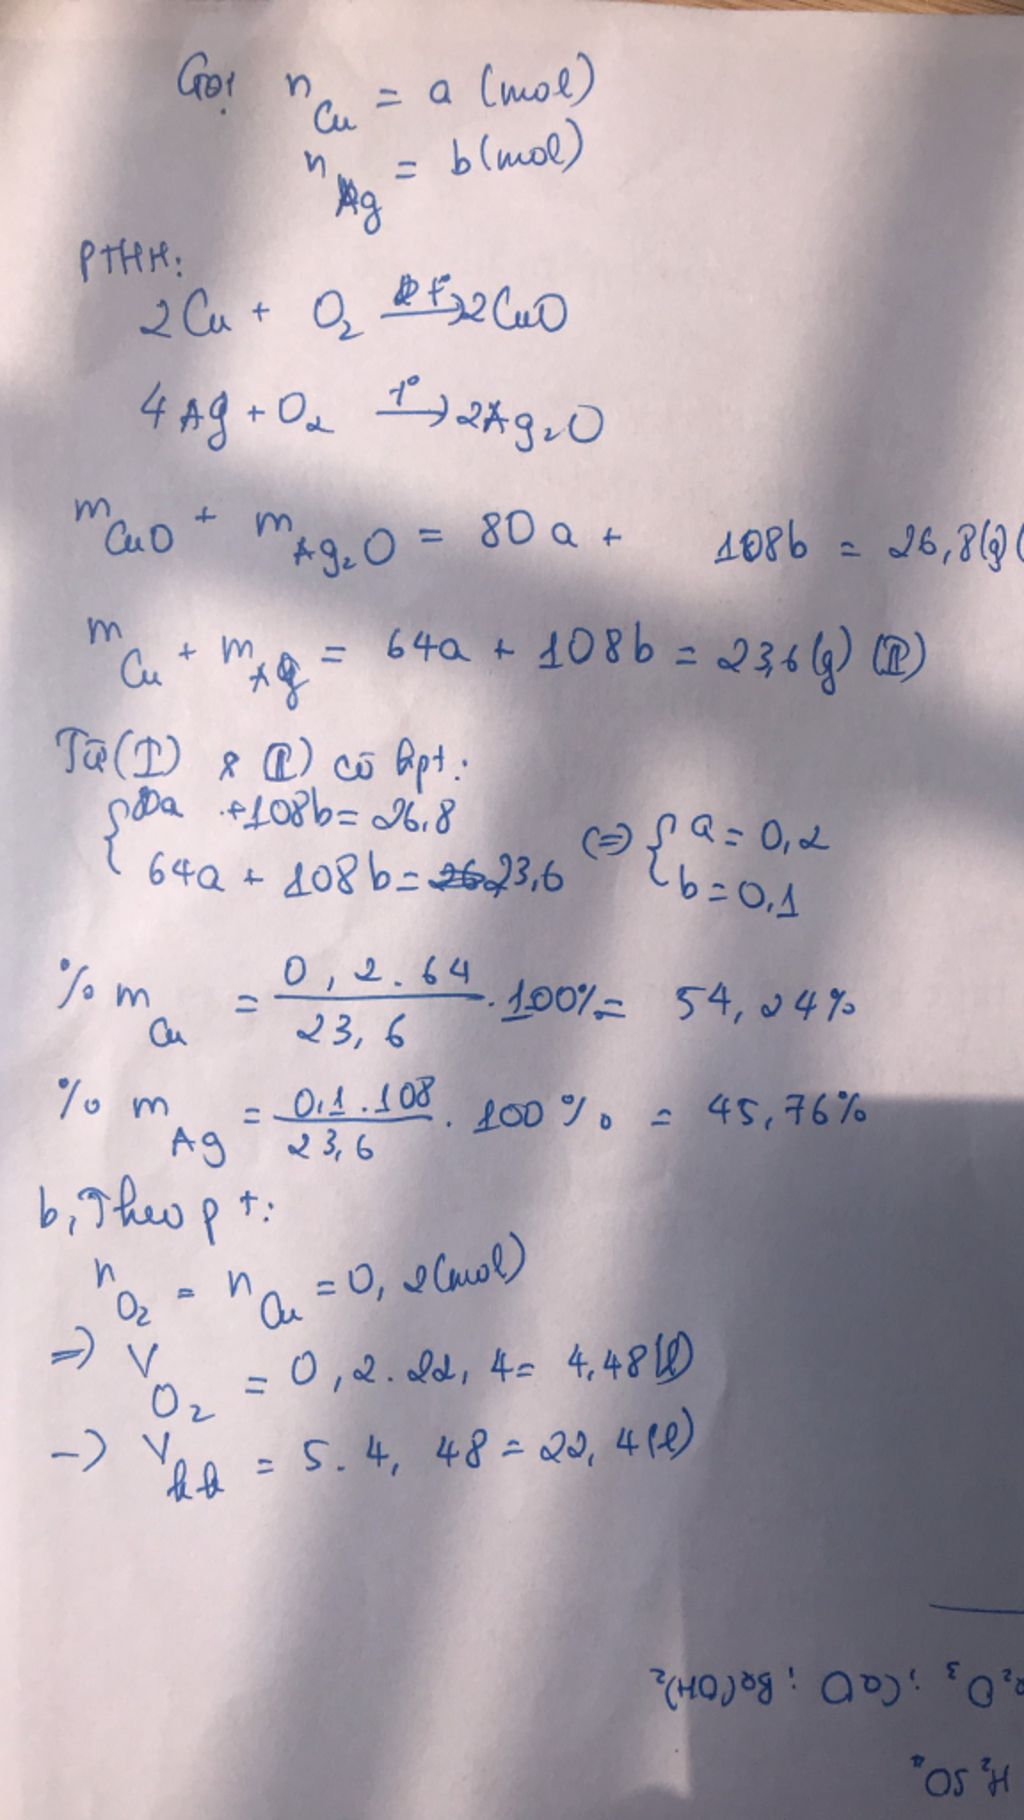 Gọi n Cu = a (mol)
n Ag = b (mol)
PTHH:
2Cu + O2 t° → 2CuO
4Ag + O2 t° → 2Ag2O
m CuO + m Ag2O = 80a + 108b = 26,8(g) (
m Cu + m Ag = 64a + 108b = 23,6 (g) (II)
Từ (I) & (II) có hpt:
{ 80a + 108b = 26,8
64a + 108b = 23,6 (=) { a = 0,2
b = 0,1
% m Cu = 0,2.64 / 23,6 . 100% = 54,24%
% m Ag = 0,1.108 / 23,6 . 100% = 45,76%
b, Theo pt:
n O2 = n Cu = 0,2 (mol)
=> V O2 = 0,2.22,4 = 4,48 (l)
-> V kk = 5.4,48 = 22,4 (l)
2O3 ; CaO ; Ba(OH)2
H2SO4